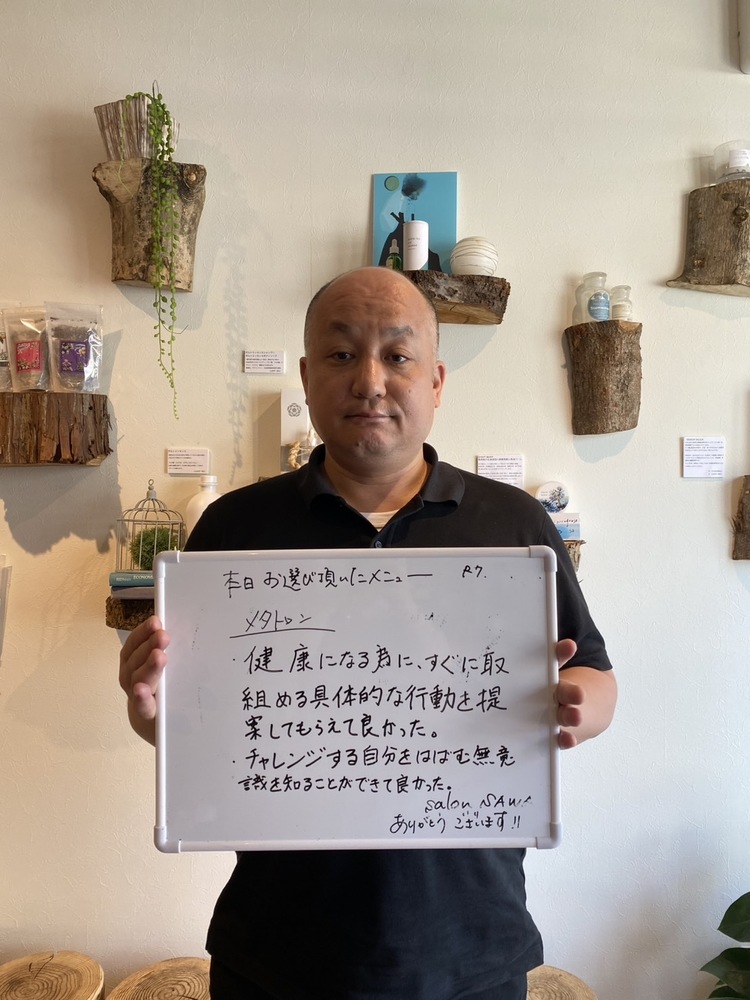 本日 お選び頂いたメニュー R7.
メタトロン
・健康になる為に、すぐに取
組める具体的な行動を提
案してもらえて良かった。
・チャレンジする自分をはばむ無意
識を知ることができて良かった。
salon SAWA
ありがとうございます!!